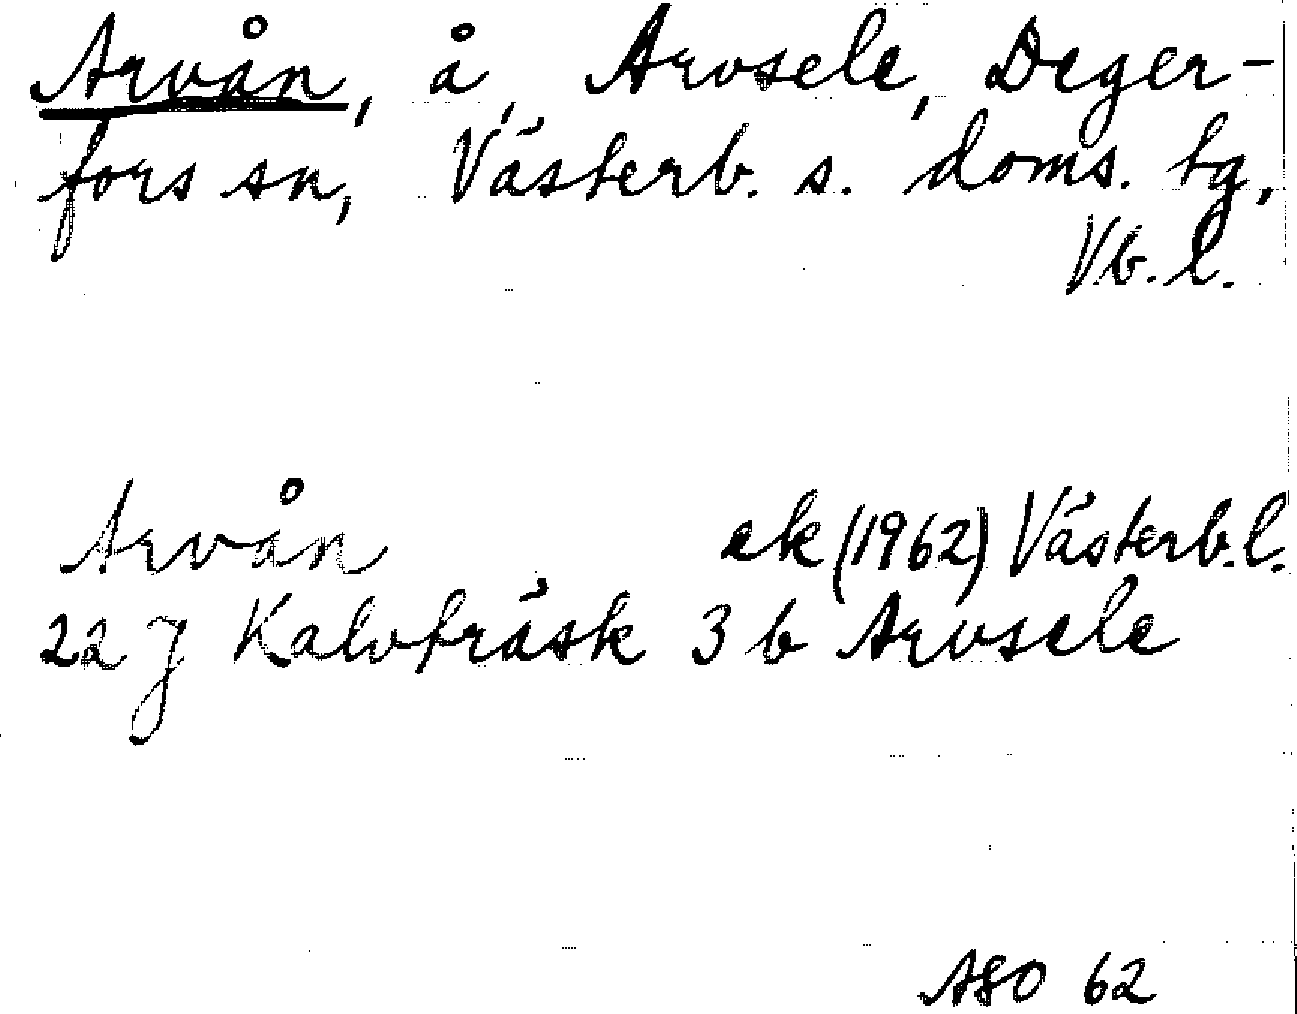 Arvån, å, Arvsele, Deger-
fors sn, Västerb. s. doms. tg,
Vb. l.
Arvån ek (1962) Västerb.l.
22 J Kalvträsk 3 b Arvsele
ASO 62